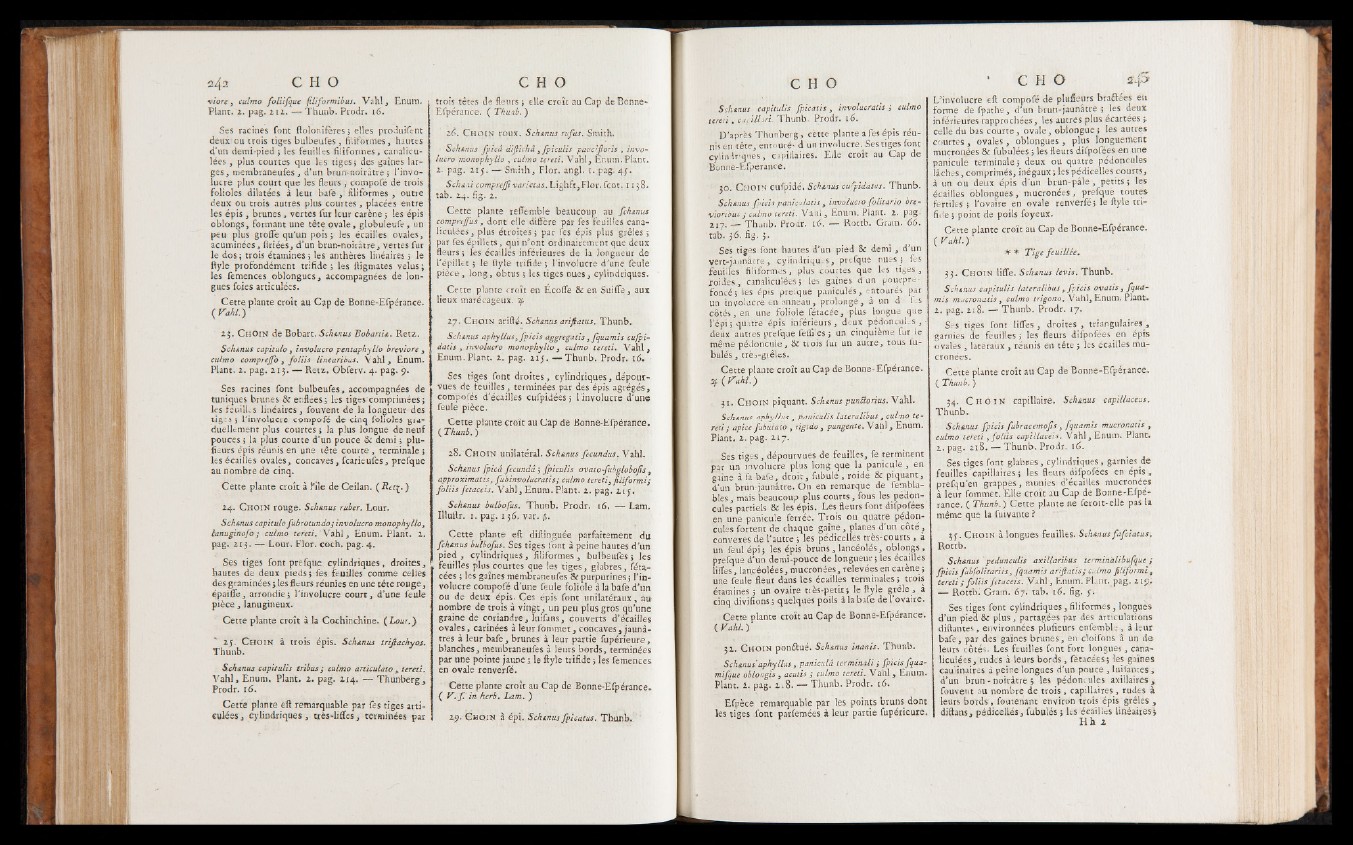 242 C H O
viore, culmo foliifque filiformibus. Vahl, Enum.
Plant. 2. pag. 212. — Thunb. Prodr. 16.
Ses racines font ftolonifères ; elles produifent
deux ou trois tiges bulbeufes, filiformes, hautes
d'un demi-pied ; les feuilles filiformes, canalicu-
lées, plus courtes que les tiges ; des gaînes lar-
ges, membraneufes, d'un brun-noirâtre ; l'invo-
lucre plus court que les fleurs, compofé de trois
folioles dilatées à leur bafe, filiformes, outre
deux ou trois autres plus courtes, placées entre
les épis, brunes, vertes fur leur carène ; les épis
oblongs, formant une tête ovale, globuleufe, un
peu plus groffe qu'un pois ; les écailles ovales,
acuminées, ftriées, d'un brun-noirâtre, vertes fur
le dos ; trois étamines ; les anthères linéaires ; le
ftyle profondément trifide ; les ftigmates velus ;
les femences oblongues, accompagnées de lon-
gues foies articulées.
Cette plante croît au Cap de Bonne-Efpérance.
( Vahl. )
23. CHOIN de Bobart. Schœnus Bobartiæ. Retz.
Schœnus capitulo, involucro pentaphyllo breviore,
culmo compreffo, foliis linearibus. Vahl, Enum.
Plant. 2. pag. 213. — Retz. Obferv. 4. pag. 9.
Ses racines font bulbeufes, accompagnées de
tuniques brunes & enflées ; les tiges comprimées ;
les feuilles linéaires, fouvent de la longueur des
tiges ; l'involucre compofé de cinq folioles gra-
duellement plus courtes ; la plus longue de neuf
pouces ; la plus courte d'un pouce & demi ; plu-
fieurs épis réunis en une tête courte, terminale ;
les écailles ovales, concaves, fcarieufes, prefque
au nombre de cinq.
Cette plante croît à l'île de Ceilan. ( Retz. )
24. CHOIN rouge. Schœnus ruber. Lour.
Schœnus capitulo fubrotundo ; involucro monophyllo,
lanuginofo ; culmo tereti. Vahl, Enum. Plant. 2.
pag. 213. — Lour. Flor. coch. pag. 4.
Ses tiges font prefque cylindriques, droites,
hautes de deux pieds ; fes feuilles comme celles
des graminées ; les fleurs réunies en une tête rouge,
épaiffe, arrondie ; l'involucre court, d'une feule
pièce, lanugineux.
Cette plante croît à la Cochinchine. ( Lour. )
25. CHOIN à trois épis. Schœnus triftachyos.
Thunb.
Schœnus capitulis tribus ; culmo articulato, tereti.
Vahl, Enum. Plant. 2. pag. 214. — Thunberg,
Prodr. 16.
Cette plante eft remarquable par fes tiges arti-
culées, cylindriques, très-liffes, terminées par
C H O
trois têtes de fleurs ; elle croît au Cap de Bonne-
Efpérance. ( Thunb. )
26. CHOIN roux. Schœnus rufus. Smith.
Schœnus fpicâ diftichâ, fpiculis paucifloris, invo-
lucro monophyllo, culmo tereti. Vahl, Enum. Plant.
2. pag. 215. — Smith, Flor. angl. 1. pag. 45.
Schœni compreffi varietas. Lighft, Flor. fcot. 1138.
tab. 24. fig. 2.
Cette plante reffemble beaucoup au fchœnus
compreffus, dont elle diffère par fes feuilles cana-
liculées, plus étroites ; par fes épis plus grêles ;
par fes épillets, qui n'ont ordinairement que deux
fleurs ; les écailles inférieures de la longueur de
l'épillet ; le ftyle trifide ; l'involucre d'une feule
pièce, long, obtus ; les tiges nues, cylindriques.
Cette plante croît en Écoffe & en Suiffe, aux
lieux marécageux. ♃
27. CHOIN arifté. Schœnus ariftatus. Thunb.
Schœnus aphyllus, fpicis aggregatis, fquamis cufpi-
datis, involucro monophyllo, culmo tereti. Vahl,
Enum. Plant. 2. pag. 215. — Thunb. Prodr. 16.
Ses tiges font droites, cylindriques, dépour-
vues de feuilles, terminées par des épis agrégés,
compofés d'écailles cufpidées ; l'involucre d'une
feule pièce.
Cette plante croît au Cap de Bonne-Efpérance.
( Thunb. )
28. CHOIN unilatéral. Schœnus fecundus. Vahl.
Schœnus fpicâ fecundâ ; fpiculis ovato-fubglobofis,
approximatis, fubinvolucratis ; culmo tereti, filiformi ;
foliis fetaceis. Vahl, Enum. Plant. 2. pag. 215.
Schœnus bulbofus. Thunb. Prodr. 16. — Lam.
Illuftr. 1. pag. 136. var. β.
Cette plante eft diftinguée parfaitement du
fchœnus bulbofus. Ses tiges font à peine hautes d'un
pied, cylindriques, filiformes, bulbeufes ; les
feuilles plus courtes que les tiges, glabres, féta-
cées ; les gaînes membraneufes & purpurines ; l'in-
volucre compofé d'une feule foliole à la bafe d'un
ou de deux épis. Ces épis font unilatéraux, au
nombre de trois à vingt, un peu plus gros qu'une
graine de coriandre, luifans, couverts d'écailles
ovales, carinées à leur fommet, concaves, jaunâ-
tres à leur bafe, brunes à leur partie fupérieure,
blanches, membraneufes à leurs bords, terminées
par une pointe jaune ; le ftyle trifide ; les femences
en ovale renverfé.
Cette plante croît au Cap de Bonne-Efpérance.
( V. f. in herb. Lam. )
29. CHOIN à épi. Schœnus fpicatus. Thunb.
C H O
Schœnus capitulis fpicatis, involucratis ; culmo
tereti, capillari. Thunb. Prodr. 16.
D'après Thunberg, cette plante a fes épis réu-
nis en tête, entourés d'un involucre. Ses tiges font
cylindriques, capillaires. Elle croît au Cap de
Bonne-Efpérance.
30. CHOIN cufpidé. Schœnus cufpidatus. Thunb.
Schœnus fpicis paniculatis, involucro folitario bre-
vioribus ; culmo tereti. Vahl, Enum. Plant. 2. pag.
217. — Thunb. Prodr. 16. — Rottb. Gram. 66.
tab. 36. fig. 3.
Ses tiges font hautes d'un pied & demi, d'un
vert-jaunâtre, cylindriques, prefque nues ; fes
feuilles filiformes, plus courtes que les tiges,
roides, canaliculées ; les gaînes d'un pourpre-
foncé ; les épis prefque paniculés, entourés par
un involucre en anneau, prolongé, à un des
côtés, en une foliole fétacée, plus longue que
l'épi ; quatre épis inférieurs, deux pédonculés,
deux autres prefque feffiles ; un cinquième fur le
même pédoncule, & trois fur un autre, tous fu-
bulés, très-grêles.
Cette plante croît au Cap de Bonne-Efpérance.
♃ ( Vahl. )
31. CHOIN piquant. Schœnus punctorius. Vahl.
Schœnus aphyllus, paniculis lateralibus, culmo te-
reti ; apice fubulato, rigido, pungente. Vahl, Enum.
Plant. 2. pag. 217.
Ses tiges, dépourvues de feuilles, fe terminent
par un involucre plus long que la panicule, en
gaîne à la bafe, droit, fubulé, roide & piquant,
d'un brun-jaunâtre. On en remarque de fembla-
bles, mais beaucoup plus courts, fous les pédon-
cules partiels & les épis. Les fleurs font difpofées
en une panicule ferrée. Trois ou quatre pédon-
cules fortent de chaque gaîne, planes d'un côté,
convexes de l'autre ; les pédicelles très-courts, à
un feul épi ; les épis bruns, lancéolés, oblongs,
prefque d'un demi-pouce de longueur ; les écailles
liffes, lancéolées, mucronées, relevées en carène ;
une feule fleur dans les écailles terminales ; trois
étamines ; un ovaire très-petit ; le ftyle grêle, à
cinq divifions ; quelques poils à la bafe de l'ovaire.
Cette plante croît au Cap de Bonne-Efpérance.
( Vahl. )
32. CHOIN ponctué. Schœnus inanis. Thunb.
Schœnus aphyllus, paniculâ terminali ; fpicis fqua-
mifque oblongis, acutis ; culmo tereti. Vahl, Enum.
Plant. 2. pag. 218. — Thunb. Prodr. 16.
Efpèce remarquable par les points bruns dont
les tiges font parfemées à leur partie fupérieure.
C H O 243
L'involucre eft compofé de plufieurs bractées en
forme de fpathe, d'un brun-jaunâtre ; les deux
inférieures rapprochées, les autres plus écartées ;
celle du bas courte, ovale, oblongue ; les autres
courtes, ovales, oblongues, plus longuement
mucronées & fubulées ; les fleurs difpofées en une
panicule terminale ; deux ou quatre pédoncules
lâches, comprimés, inégaux ; les pédicelles courts,
à un ou deux épis d'un brun-pâle, petits ; les
écailles oblongues, mucronées, prefque toutes
fertiles ; l'ovaire en ovale renverfé ; le ftyle tri-
fide ; point de poils foyeux.
Cette plante croît au Cap de Bonne-Efpérance.
( Vahl. )
* * Tige feuillée.
33. CHOIN liffe. Schœnus levis. Thunb.
Schœnus capitulis lateralibus, fpicis ovatis, fqua-
mis mucronatis, culmo trigono. Vahl, Enum. Plant.
2. pag. 218. — Thunb. Prodr. 17.
Ses tiges font liffes, droites, triangulaires,
garnies de feuilles ; les fleurs difpofées en épis
ovales, lateraux, réunis en tête ; les écailles mu-
cronées.
Cette plante croît au Cap de Bonne-Efpérance.
( Thunb. )
34. CHOIN capillaire. Schœnus capillaceus.
Thunb.
Schœnus fpicis fubracemofis, fquamis mucronatis,
culmo tereti, foliis capillaceis. Vahl, Enum. Plant.
2. pag. 218. — Thunb. Prodr. 16.
Ses tiges font glabres, cylindriques, garnies de
feuilles capillaires ; les fleurs difpofées en épis,
prefqu'en grappes, munies d'écailles mucronées
à leur fommet. Elle croît au Cap de Bonne-Efpé-
rance. ( Thunb. ) Cette plante ne feroit-elle pas la
même que la fuivante ?
35. CHOIN à longues feuilles. Schœnus fafciatus.
Rottb.
Schœnus pedunculis axillaribus terminalibufque ;
fpicis fubfolitariis, fquamis ariftatis ; culmo filiformi,
tereti ; foliis fetaceis. Vahl, Enum. Plant. pag. 219.
— Rottb. Gram. 67. tab. 16. fig. 5.
Ses tiges font cylindriques, filiformes, longues
d'un pied & plus, partagées par des articulations
diftantes, environnées plufieurs enfemble, à leur
bafe, par des gaînes brunes, en cloifons à un de
leurs côtés. Les feuilles font fort longues, cana-
liculées, rudes à leurs bords, fétacées ; les gaînes
caulinaires à peine longues d'un pouce, luifantes,
d'un brun-noirâtre ; les pédoncules axillaires,
fouvent au nombre de trois, capillaires, rudes à
leurs bords, foutenant environ trois épis grêles,
diftans, pédicellés, fubulés ; les écailles linéaires ;
H h 2